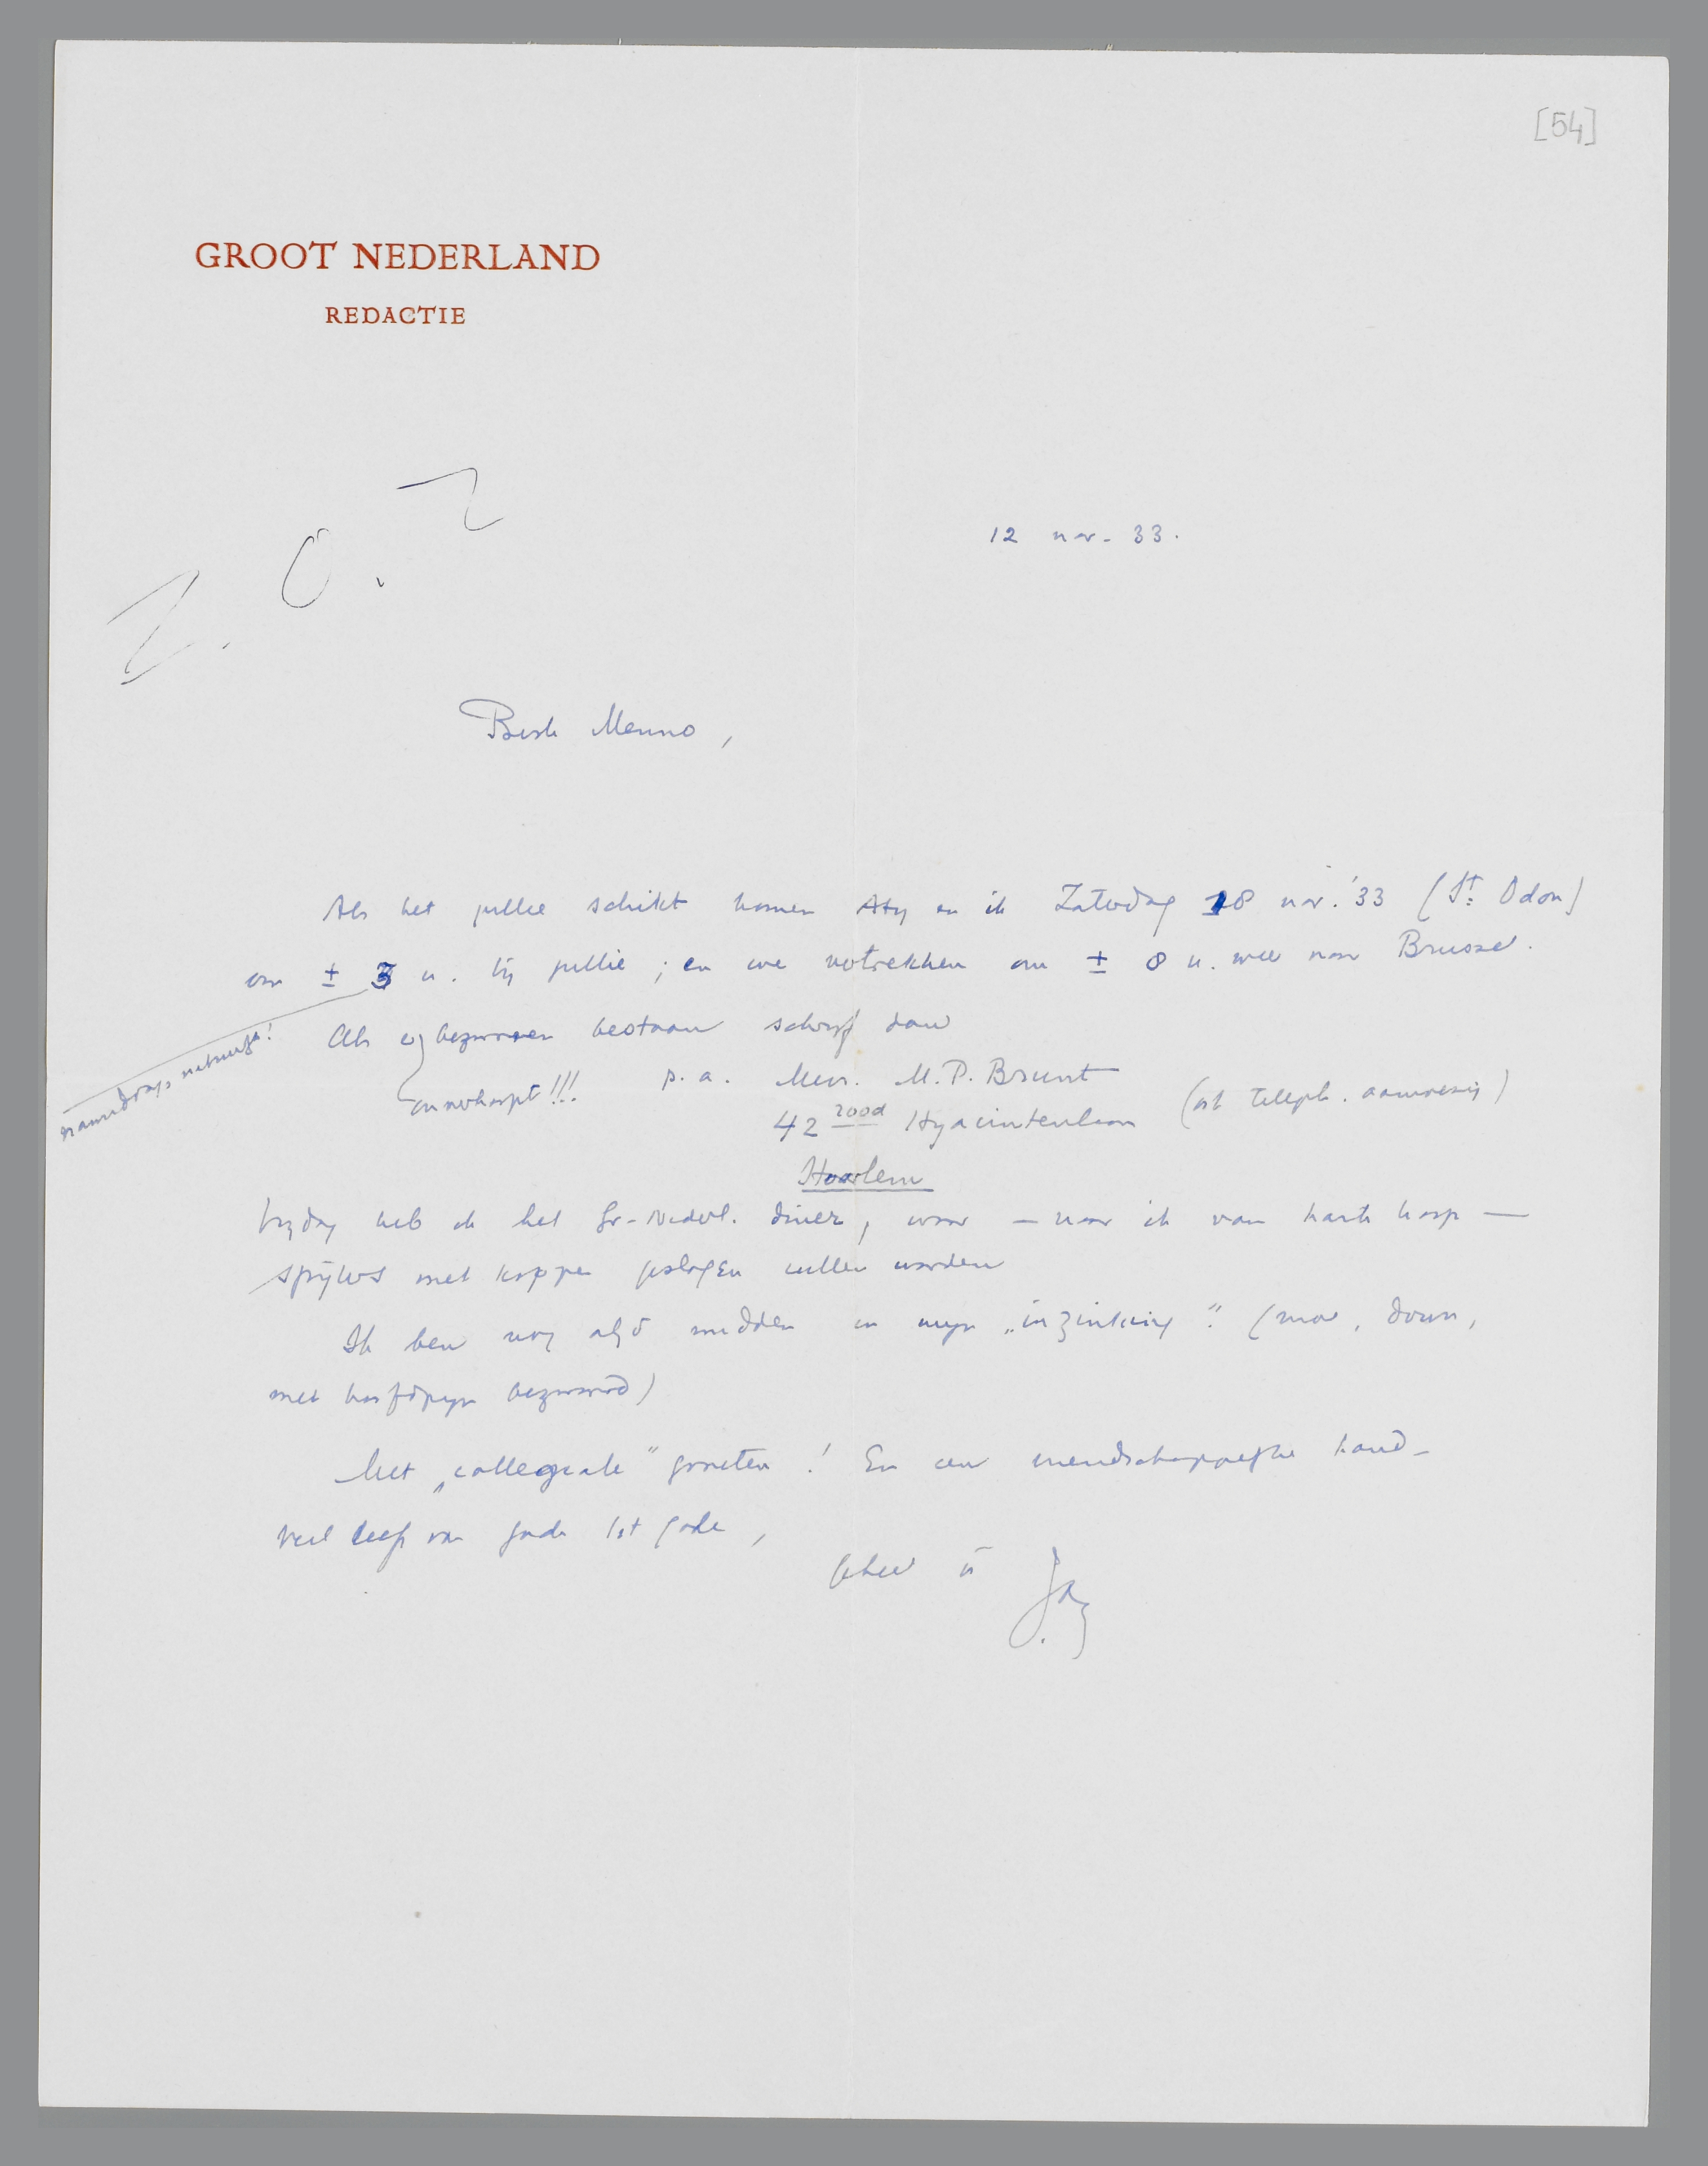 [54]
GROOT NEDERLAND
REDACTIE
Z. O. Z
12 nov. 33.
Beste Menno,
Als het jullie schikt komen Aty en ik Zaterdag 18 nov. '33 (St. Odon)
om ± 3 u. bij jullie; en we vertrekken om ± 8 u. weer naar Brussel.
namiddags natuurlijk!
Als er bezwaren bestaan schrijf dan
onverhoopt!!!
p.a. Mevr. M.P. Brunt
42 rood Hyacintenlaan (ook teleph. aanwezig)
Haarlem
Vrijdag heb ik het Gr-Nederl. diner, waar — naar ik van harte hoop —
spijkers met koppen geslagen zullen worden
Ik ben nog altijd midden in mijn „inzinking". (moe, down,
met hoofdpijn bezwaard)
Met „collegiale" groeten! En een vriendschappelijke hand-
Veel liefs van
geheel
Jan